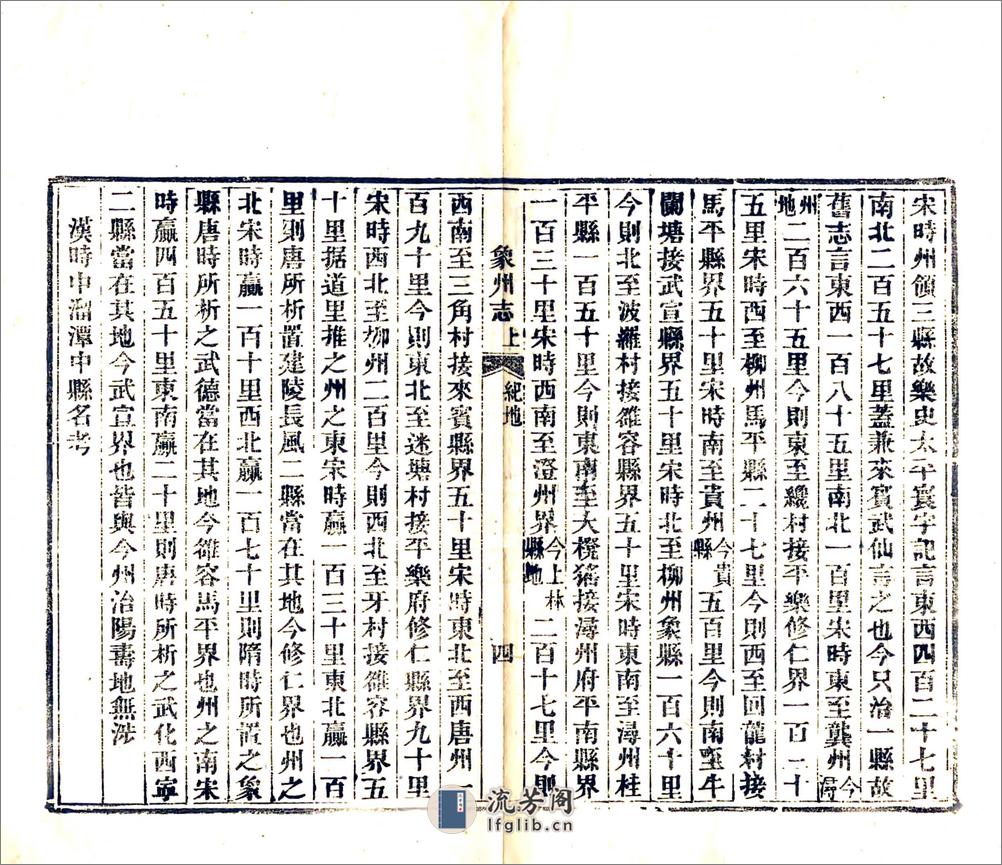 宋時州領三縣故樂史太平寰宇記言東西四百二十七里
南北二百五十七里蓋兼來賓武仙言之也今只治一縣故
舊志言東西一百八十五里南北一百里宋時東至龔州今潯
州地二百六十五里今則東至纔村接平樂修仁界一百二十
五里宋時西至柳州馬平縣二十七里今則西至回龍村接
馬平縣界五十里宋時南至貴州今貴縣五百里今則南至牛
欄塘接武宣縣界五十里宋時北至柳州象縣一百六十里
今則北至波羅村接雒容縣界五十里宋時東南至潯州桂
平縣一百五十里今則東南至大櫈猺接潯州府平南縣界
一百三十里宋時西南至澄州界今上林縣地二百十七里今則
象州志 上 紀地 四
西南至三角村接來賓縣界五十里宋時東北至西唐州一
百九十里今則東北至迷塘村接平樂府修仁縣界九十里
宋時西北至柳州二百里今則西北至牙村接雒容縣界五
十里据道里推之州之東宋時贏一百三十里東北贏一百
里則唐所析置建陵長風二縣當在其地今修仁界也州之
北宋時贏一百十里西北贏一百七十里則隋時所置之象
縣唐時所析之武德當在其地今雒容馬平界也州之南宋
時贏四百五十里東南贏二十里則唐時所析之武化西寧
二縣當在其地今武宣界也皆與今州治陽壽地無涉
漢時中溜潭中縣名考
流芳阁
lfglib.cn